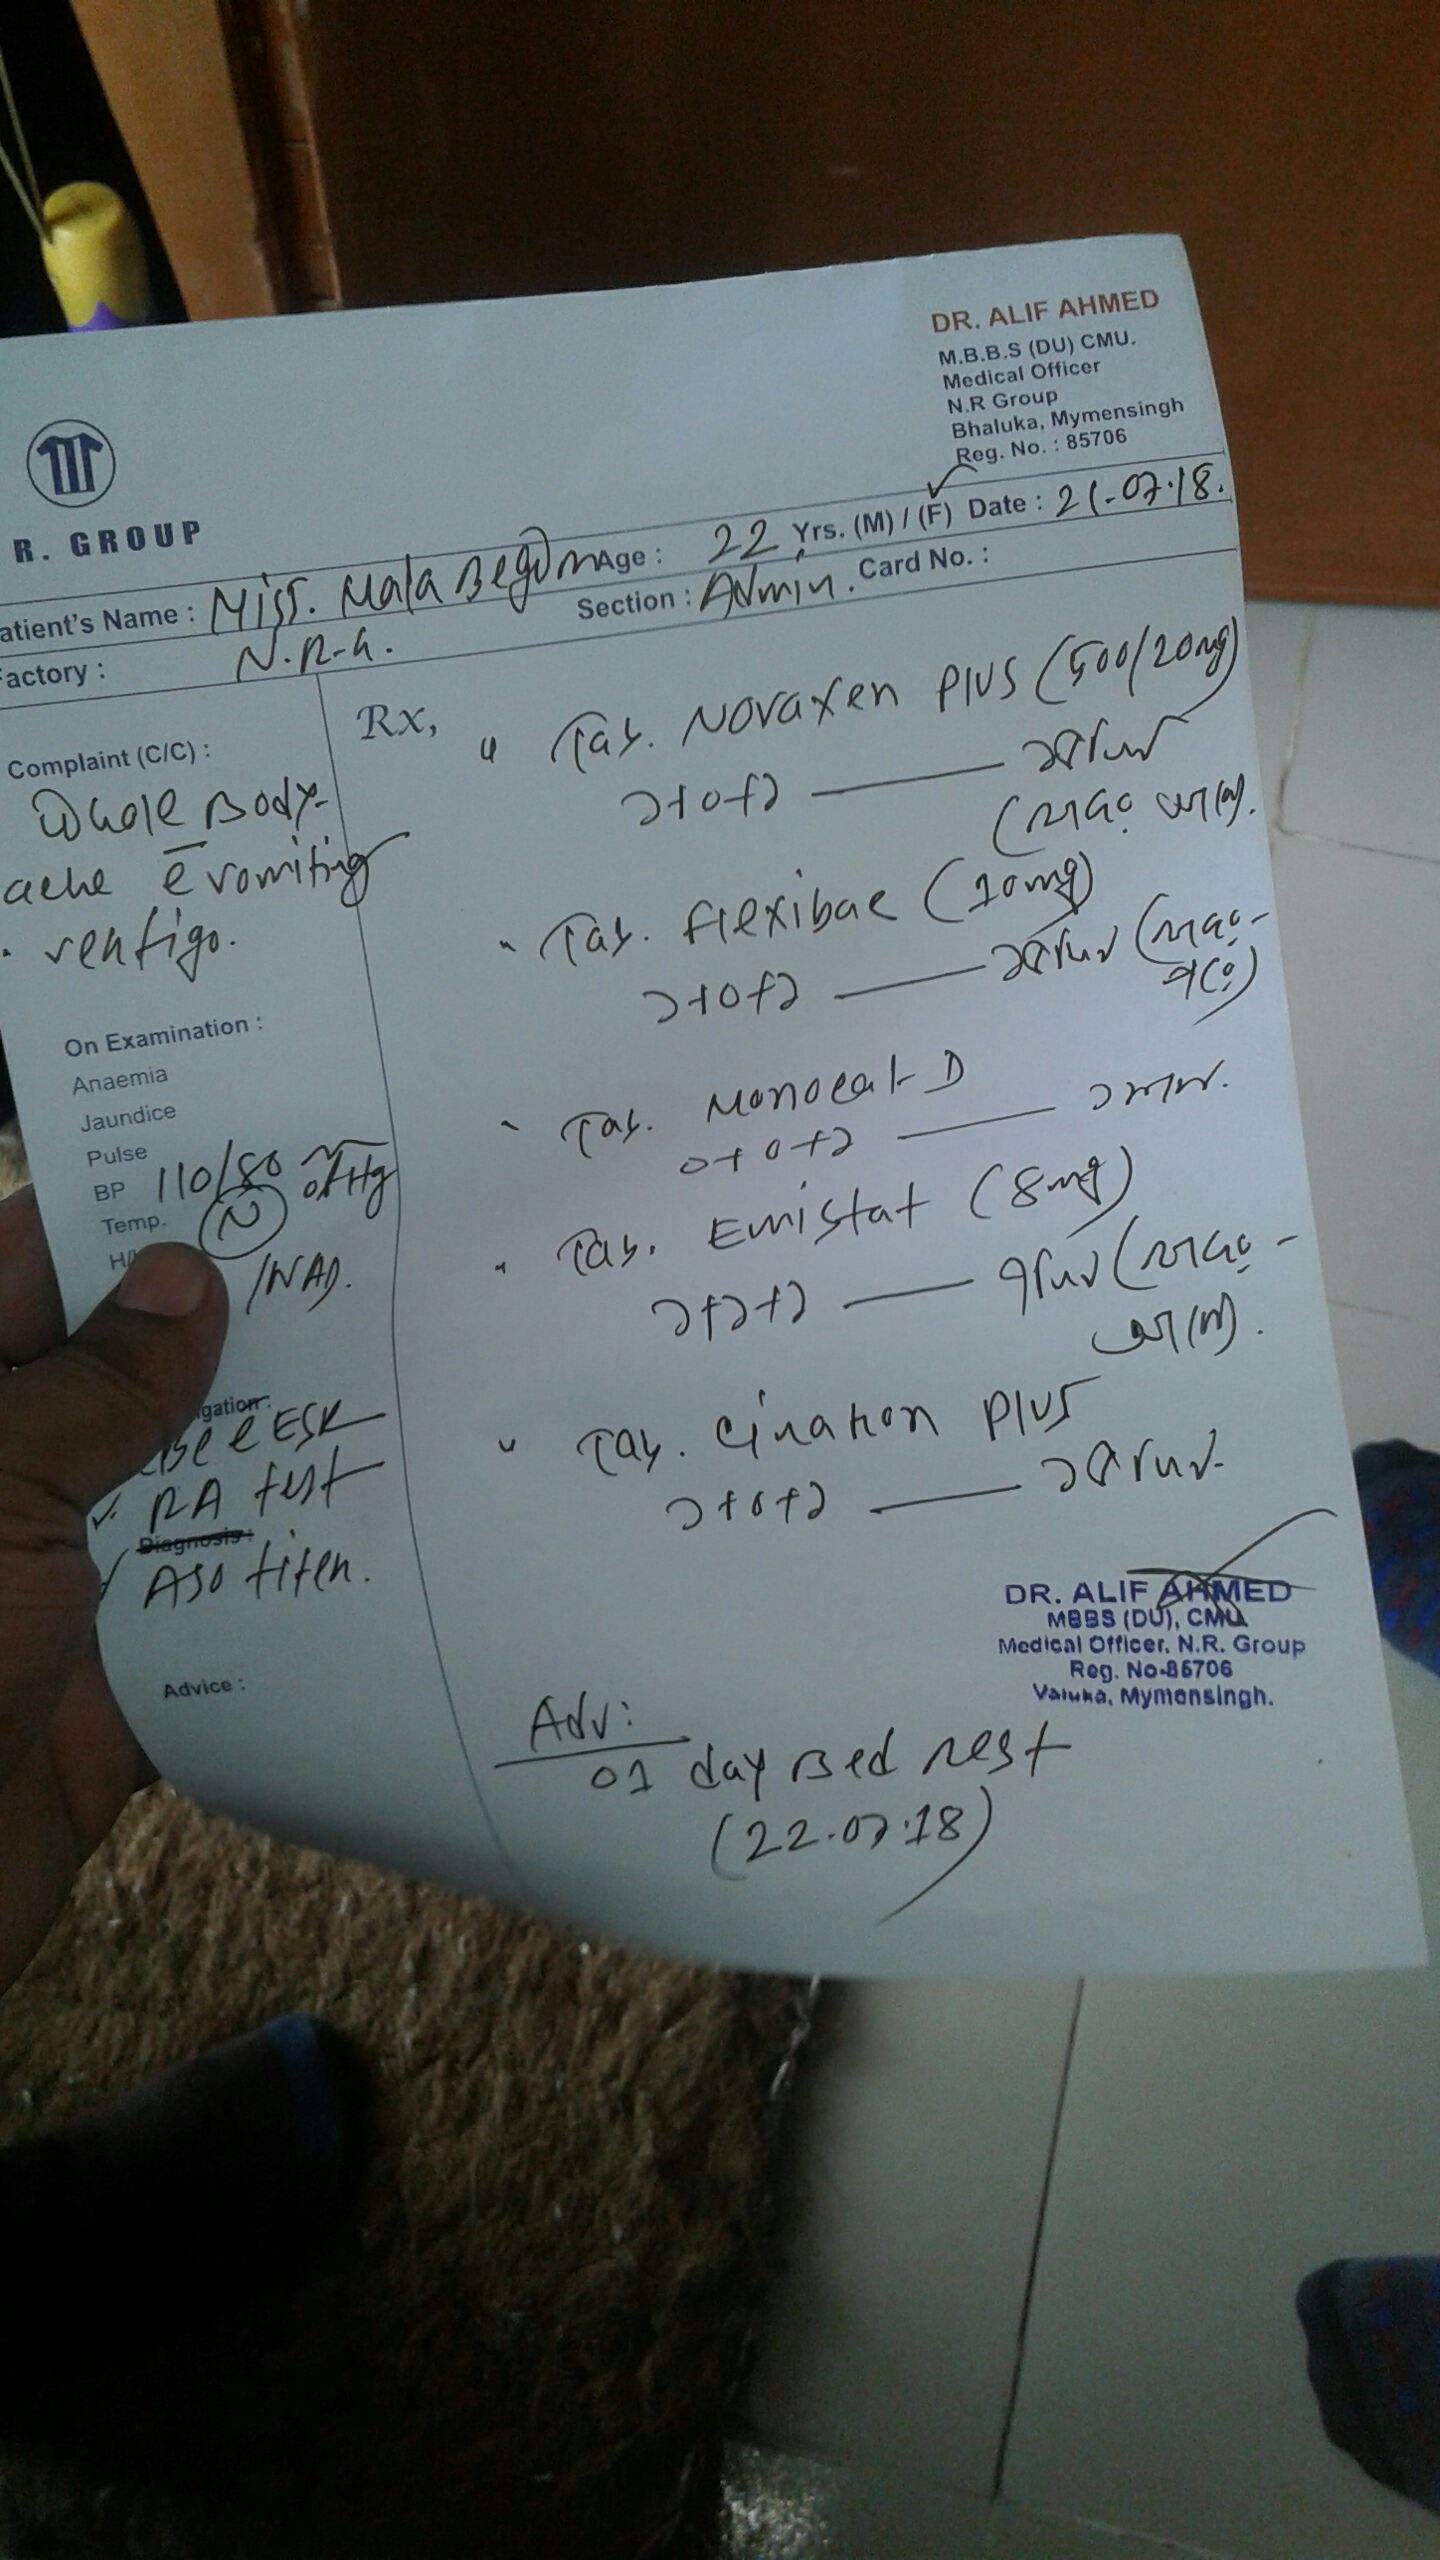 DR. ALIF AHMED
M.B.B.S (DU) CMU.
Medical Officer
N.R Group
Bhaluka, Mymensingh
Reg. No. : 85706
R. GROUP
atient's Name : Miss. Mala Begum Age : 22 Yrs. (M) / (F) Date : 21.07.18.
Factory : N.R.G. Section : Admin. Card No. :
Complaint (C/C) :
Whole Body
ache c̄ vomiting
vertigo.
On Examination :
Anaemia
Jaundice
Pulse
BP 110/80 mm of Hg
Temp. N
/NAD.
igation :
ESR
RA test
Diagnosis :
ASO titer.
Advice :
Rx,
Tab. Novaxen Plus (500/20mg)
১+০+১ —
(খাওয়ার আগে).
Tab. Flexibac (10mg)
১+০+১ —
Tab. Monocat D
০+০+১ — ১ মাস.
Tab. Emistat (8mg)
১+১+১ —
Tab. Cinaron Plus
১+০+১ —
DR. ALIF AHMED
MBBS (DU), CMU
Medical Officer, N.R. Group
Reg. No-85706
Valuka, Mymensingh.
Adv:
01 day Bed rest
(22.07.18)